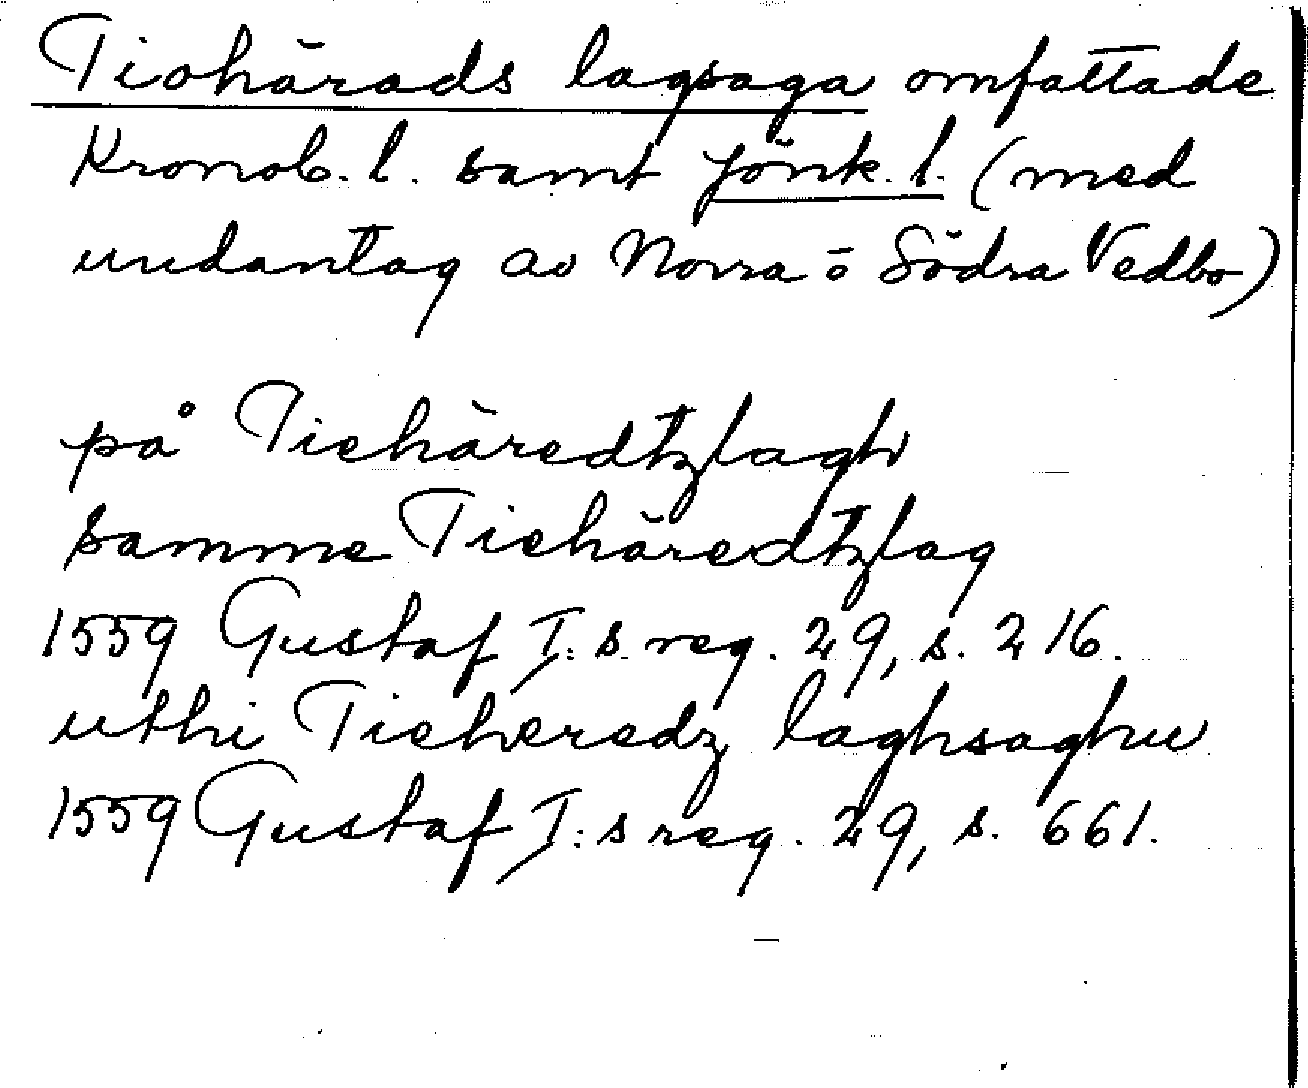 Tiohärads lagsaga omfattade
Kronob. l. samt Jönk. l. (med
undantag av Norra o Södra Vedbo)
på Tiehäredtzlagh
samme Tiehäredtzlag
1559 Gustaf I:s reg. 29, s. 216.
uthi Tieheredz laghsaghu
1559 Gustaf I:s reg. 29, s. 661.